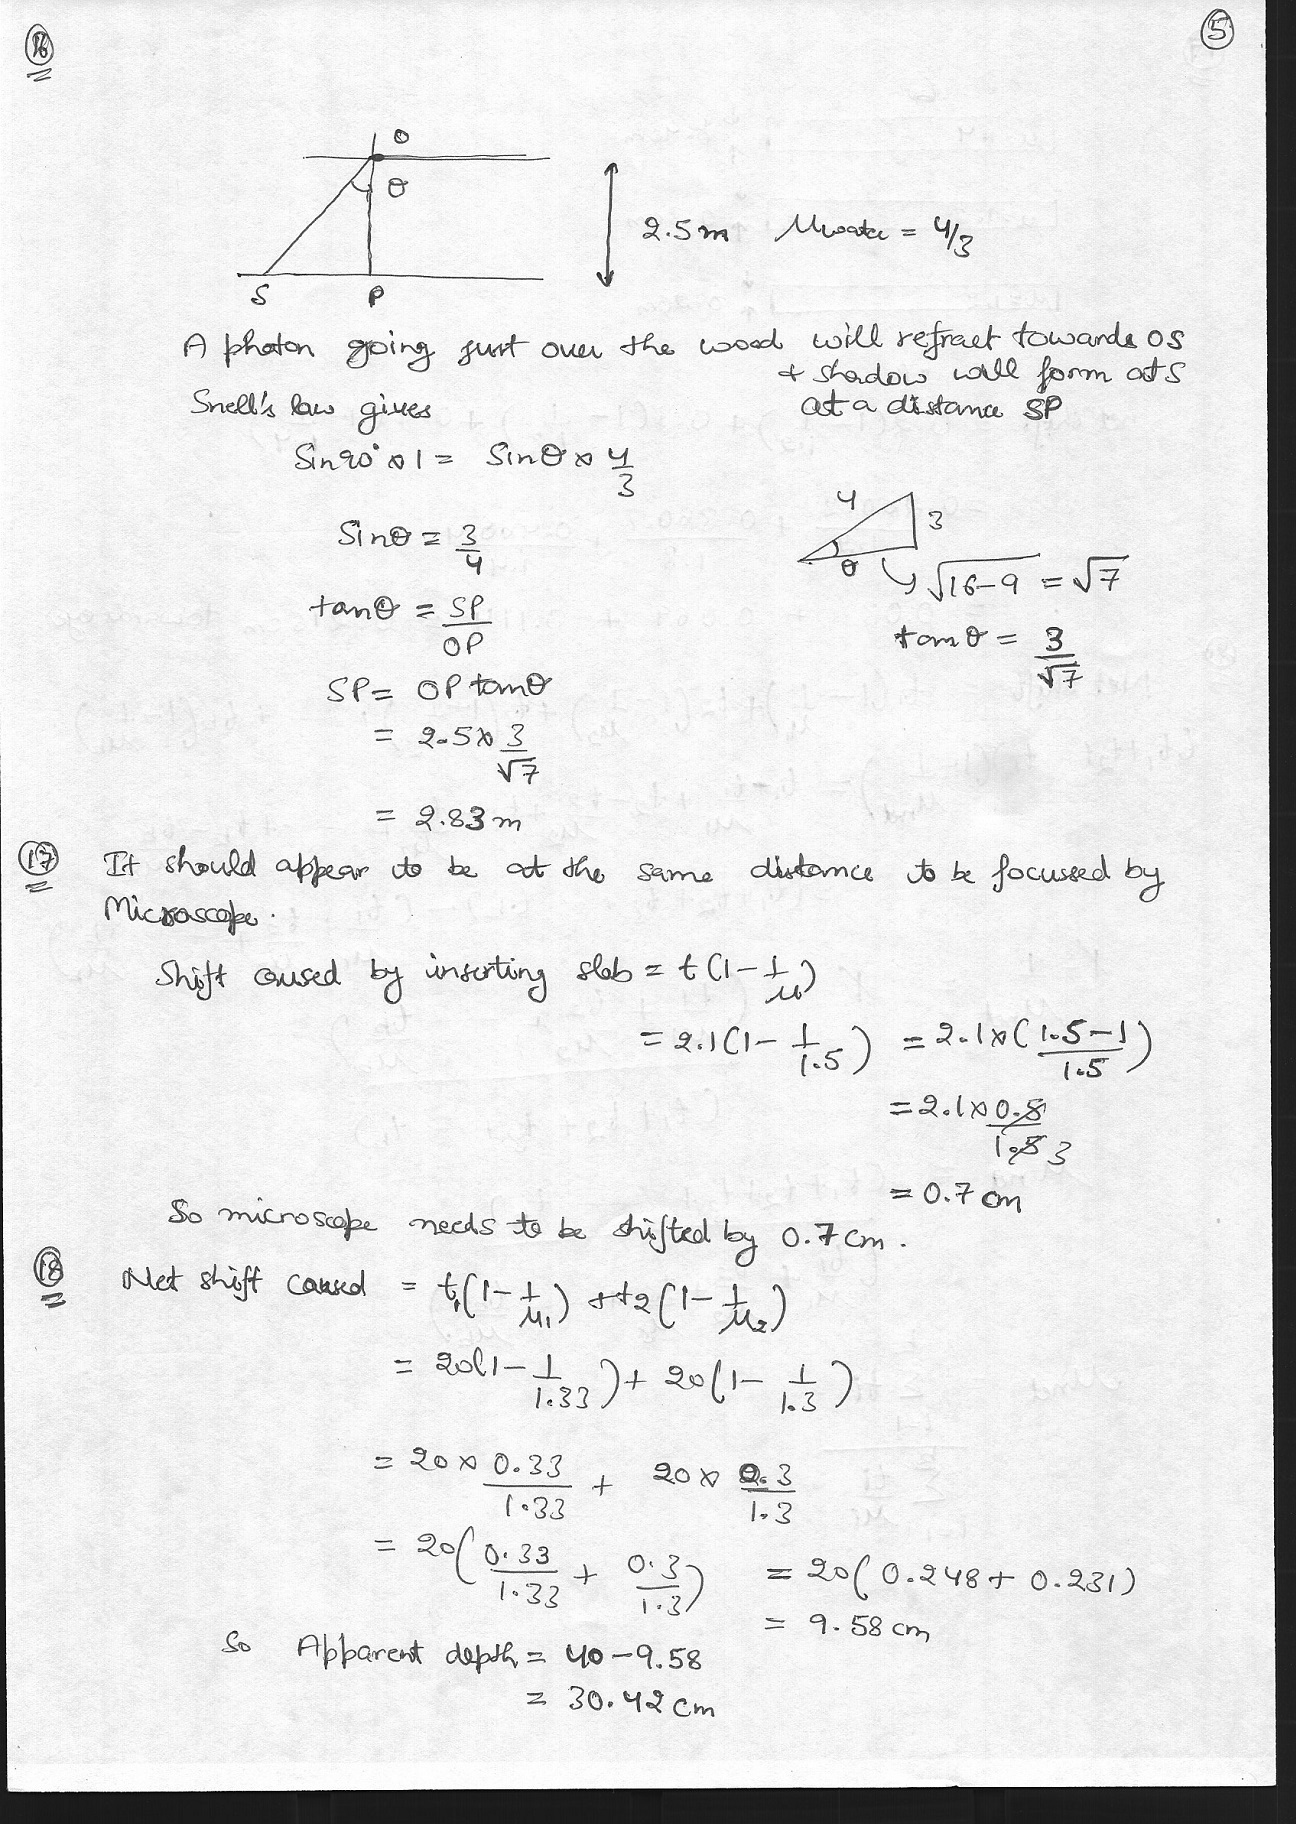 16
5
O
θ
2.5m μwater = 4/3
S P
A photon going just over the wood will refract towards OS
+ shadow will form at S
Snell's law gives at a distance SP
Sin90° × 1 = Sinθ × 4/3
4
3
Sinθ = 3/4
θ √16-9 = √7
tanθ = SP/OP
tanθ = 3/√7
SP = OP tanθ
= 2.5 × 3/√7
= 2.83 m
17 It should appear to be at the same distance to be focussed by
Microscope.
Shift caused by inserting slab = t(1 - 1/μ)
= 2.1(1 - 1/1.5) = 2.1 × (1.5-1/1.5)
= 2.1 × 0.5/1.5 3
= 0.7 cm
So microscope needs to be shifted by 0.7 cm.
18 Net shift caused = t1(1 - 1/μ1) + t2(1 - 1/μ2)
= 20(1 - 1/1.33) + 20(1 - 1/1.3)
= 20 × 0.33/1.33 + 20 × 0.3/1.3
= 20(0.33/1.33 + 0.3/1.3) = 20(0.248 + 0.231)
= 9.58 cm
So Apparent depth = 40 - 9.58
= 30.42 cm